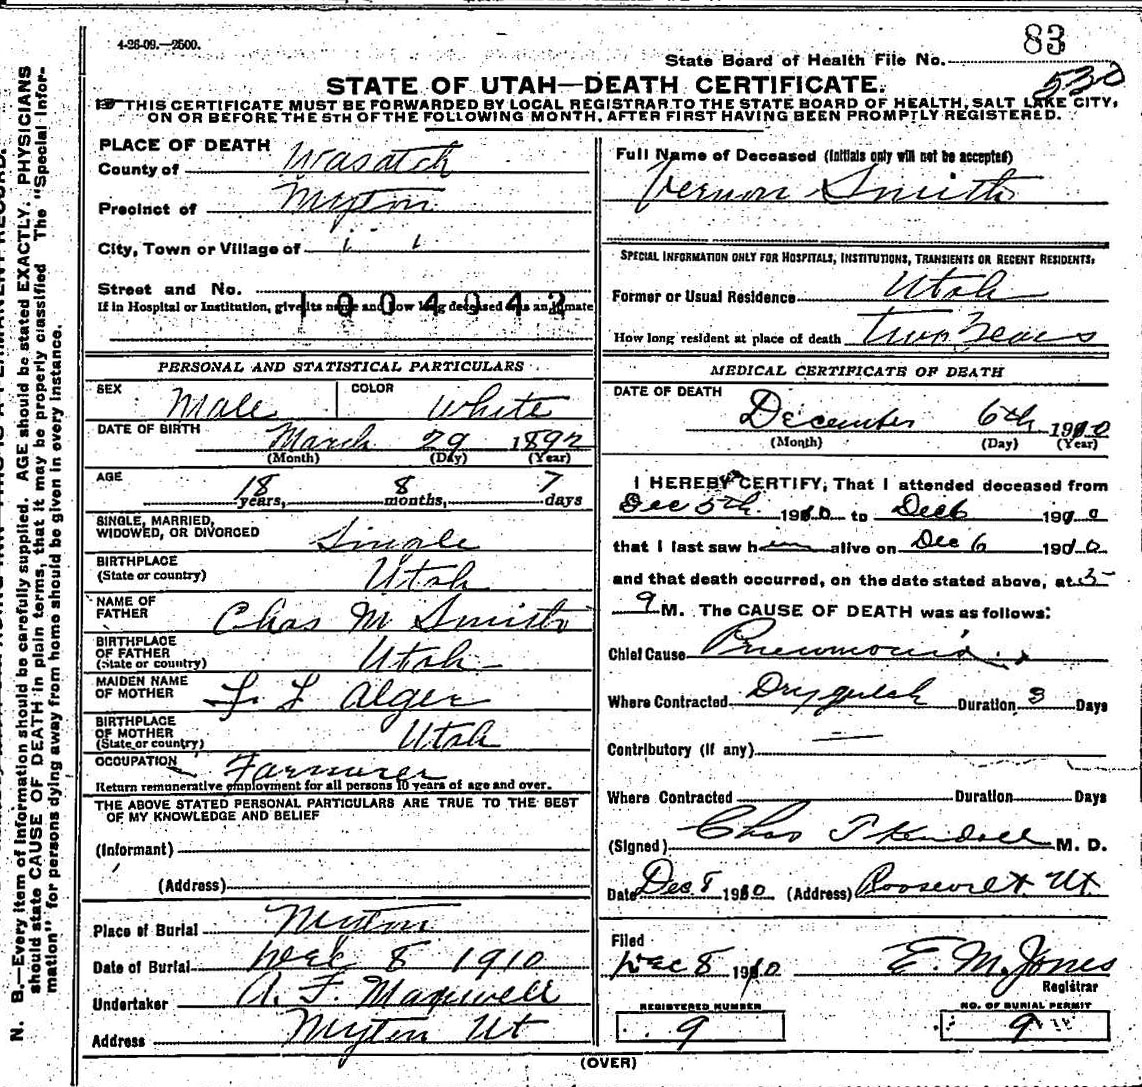 4-26-09.—2500.
83
State Board of Health File No.
530
STATE OF UTAH—DEATH CERTIFICATE.
THIS CERTIFICATE MUST BE FORWARDED BY LOCAL REGISTRAR TO THE STATE BOARD OF HEALTH, SALT LAKE CITY,
ON OR BEFORE THE 5TH OF THE FOLLOWING MONTH, AFTER FIRST HAVING BEEN PROMPTLY REGISTERED.
PLACE OF DEATH
County of Wasatch
Precinct of Myton
City, Town or Village of
Street and No.
If in Hospital or Institution, give its name and how long deceased was an inmate
1004942
PERSONAL AND STATISTICAL PARTICULARS
SEX Male COLOR White
DATE OF BIRTH March 29 1892
(Month) (Day) (Year)
AGE 18 years, 8 months, 7 days
SINGLE, MARRIED,
WIDOWED, OR DIVORCED Single
BIRTHPLACE
(State or country) Utah
NAME OF
FATHER Chas M Smith
BIRTHPLACE
OF FATHER
(State or country) Utah
MAIDEN NAME
OF MOTHER L Alger
BIRTHPLACE
OF MOTHER
(State or country) Utah
OCCUPATION
Return remunerative employment for all persons 10 years of age and over.
THE ABOVE STATED PERSONAL PARTICULARS ARE TRUE TO THE BEST
OF MY KNOWLEDGE AND BELIEF
(Informant)
(Address)
Place of Burial Myton
Date of Burial Dec 8 1910
Undertaker A. F. Maxwell
Address Myton Ut
Full Name of Deceased (Initials only will not be accepted)
Vernon Smith
SPECIAL INFORMATION ONLY FOR HOSPITALS, INSTITUTIONS, TRANSIENTS OR RECENT RESIDENTS,
Former or Usual Residence Utah
How long resident at place of death two Years
MEDICAL CERTIFICATE OF DEATH
DATE OF DEATH
December 6th 1910
(Month) (Day) (Year)
I HEREBY CERTIFY, That I attended deceased from
Dec 5th 1910 to Dec 6 1910
that I last saw him alive on Dec 6 1910
and that death occurred, on the date stated above, at 5
M. The CAUSE OF DEATH was as follows:
Chief Cause Pneumonia
Where Contracted Drygulch Duration 3 Days
Contributory (if any)
Where Contracted Duration Days
(Signed) Chas J Kendall M. D.
Date Dec 8 1910 (Address) Roosevelt Ut
Filed
Dec 8 1910 E. M. Jones
Registrar
REGISTERED NUMBER
9
NO. OF BURIAL PERMIT
9
(OVER)
N. B.—Every item of information should be carefully supplied. AGE should be stated EXACTLY. PHYSICIANS
should state CAUSE OF DEATH in plain terms, that it may be properly classified The "Special Infor-
mation" for persons dying away from home should be given in every instance.